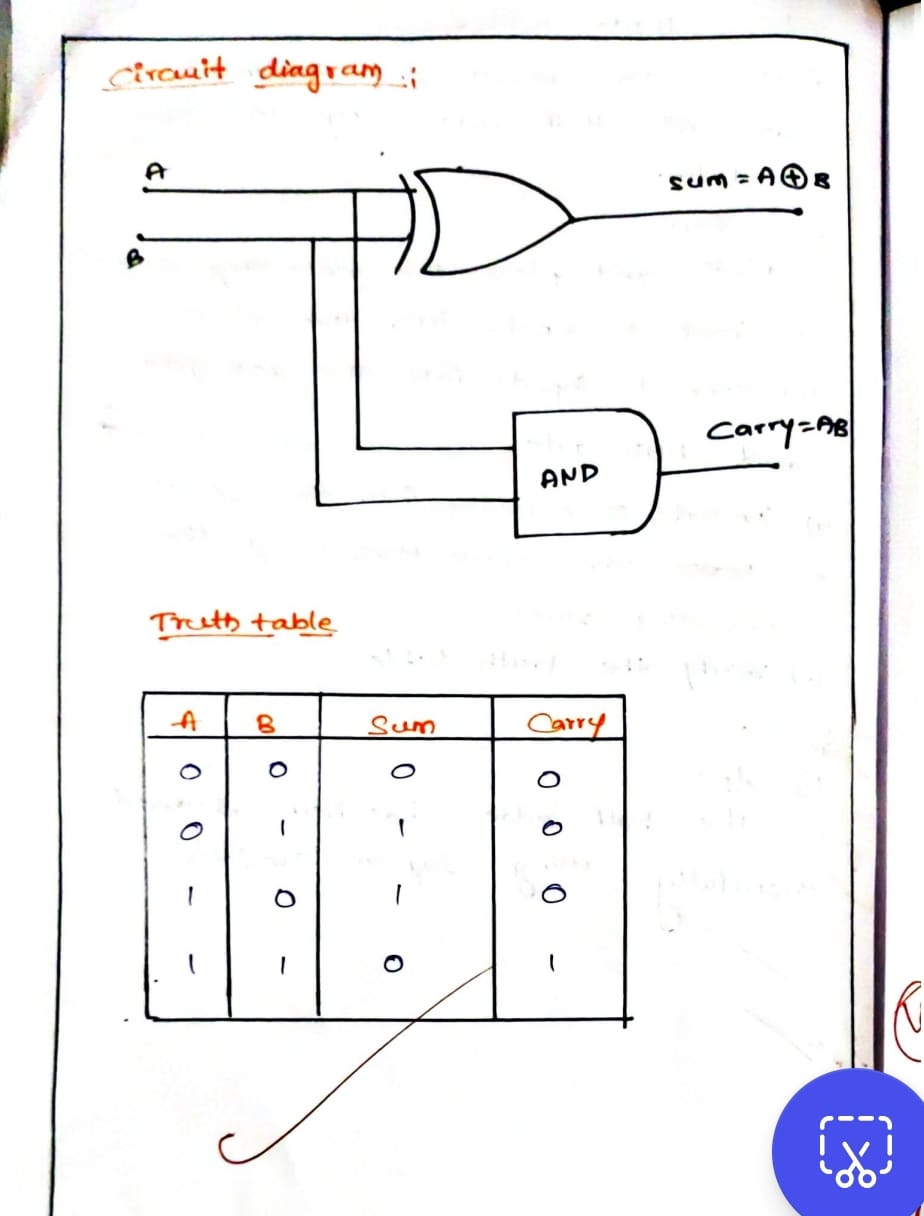 Circuit diagram :
A
sum = A ⊕ B
B
Carry = AB
AND
Truth table
A B Sum Carry
0 0 0 0
0 1 1 0
1 0 1 0
1 1 0 1